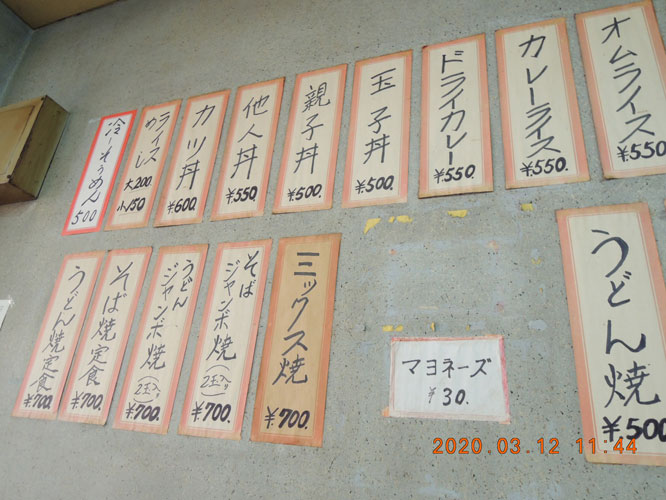 オムライス
¥550
カレーライス
¥550
ドライカレー
¥550
玉子丼
¥500
親子丼
¥500
他人丼
¥550
カツ丼
¥600
ライス
めし
大200
小150
冷しそうめん
500
うどん焼
¥500
マヨネーズ
¥30.
ミックス焼
¥700
そば
ジャンボ焼
(2玉入)
¥700.
うどん
ジャンボ焼
(2玉入)
¥700
そば焼定食
¥700.
うどん焼定食
¥700
2020.03.12 11:44